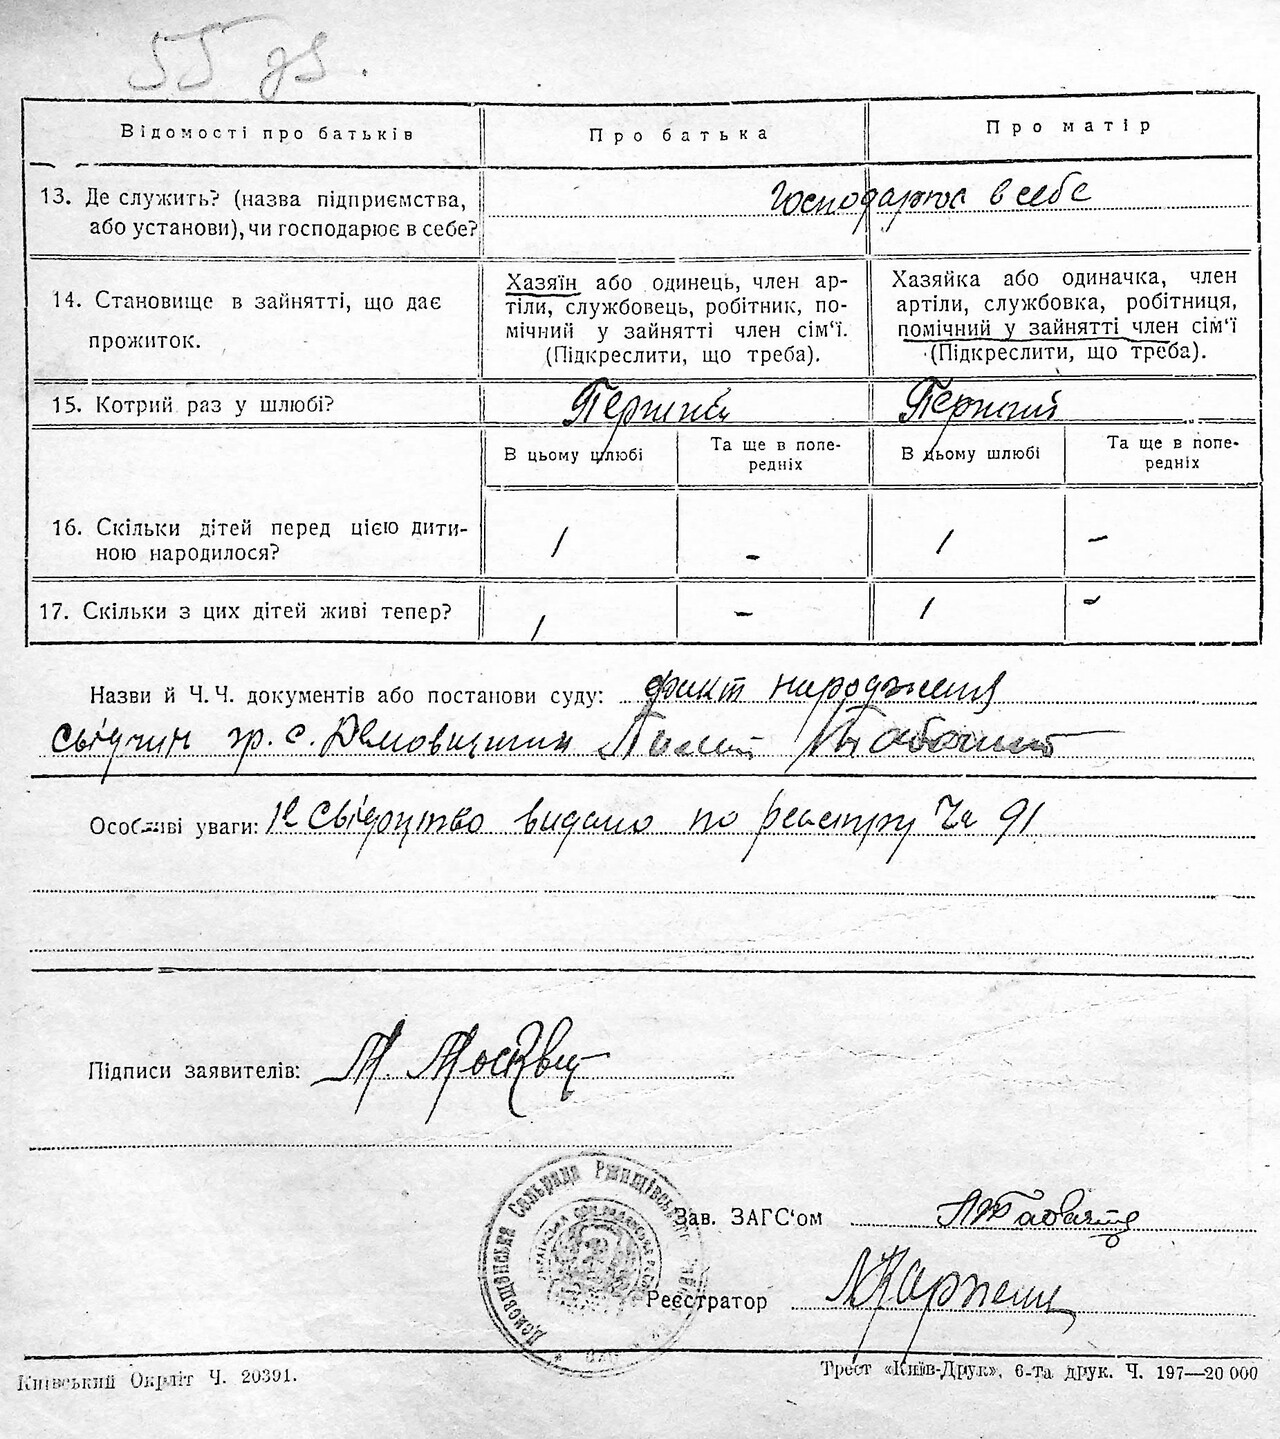 55 дз.
Відомості про батьків
Про батька
Про матір
13. Де служить? (назва підприємства,
або установи), чи господарює в себе?
Господарює в себе
14. Становище в зайнятті, що дає
прожиток.
Хазяїн або одинець, член ар-
тіли, службовець, робітник, по-
мічний у зайнятті член сім‘ї.
(Підкреслити, що треба).
Хазяйка або одиначка, член
артіли, службовка, робітниця,
помічний у зайнятті член сім‘ї
(Підкреслити, що треба).
15. Котрий раз у шлюбі?
Перший
Перший
В цьому шлюбі
Та ще в попе-
редніх
В цьому шлюбі
Та ще в попе-
редніх
16. Скільки дітей перед цією дити-
ною народилося?
1
-
1
-
17. Скільки з цих дітей живі тепер?
1
-
1
-
Назви й Ч.Ч. документів або постанови суду: факт народження
свідчит гр. с. Демовщини
Особливі уваги: свідоцтво видано по реєстру Ча 91
Підписи заявителів: М. Москвец
Сельрада Ржищівського
Зав. ЗАГС‘ом
Реєстратор
Київський Окрліт Ч. 20391.
Трест «Київ-Друк», 6-та друк. Ч. 197—20 000